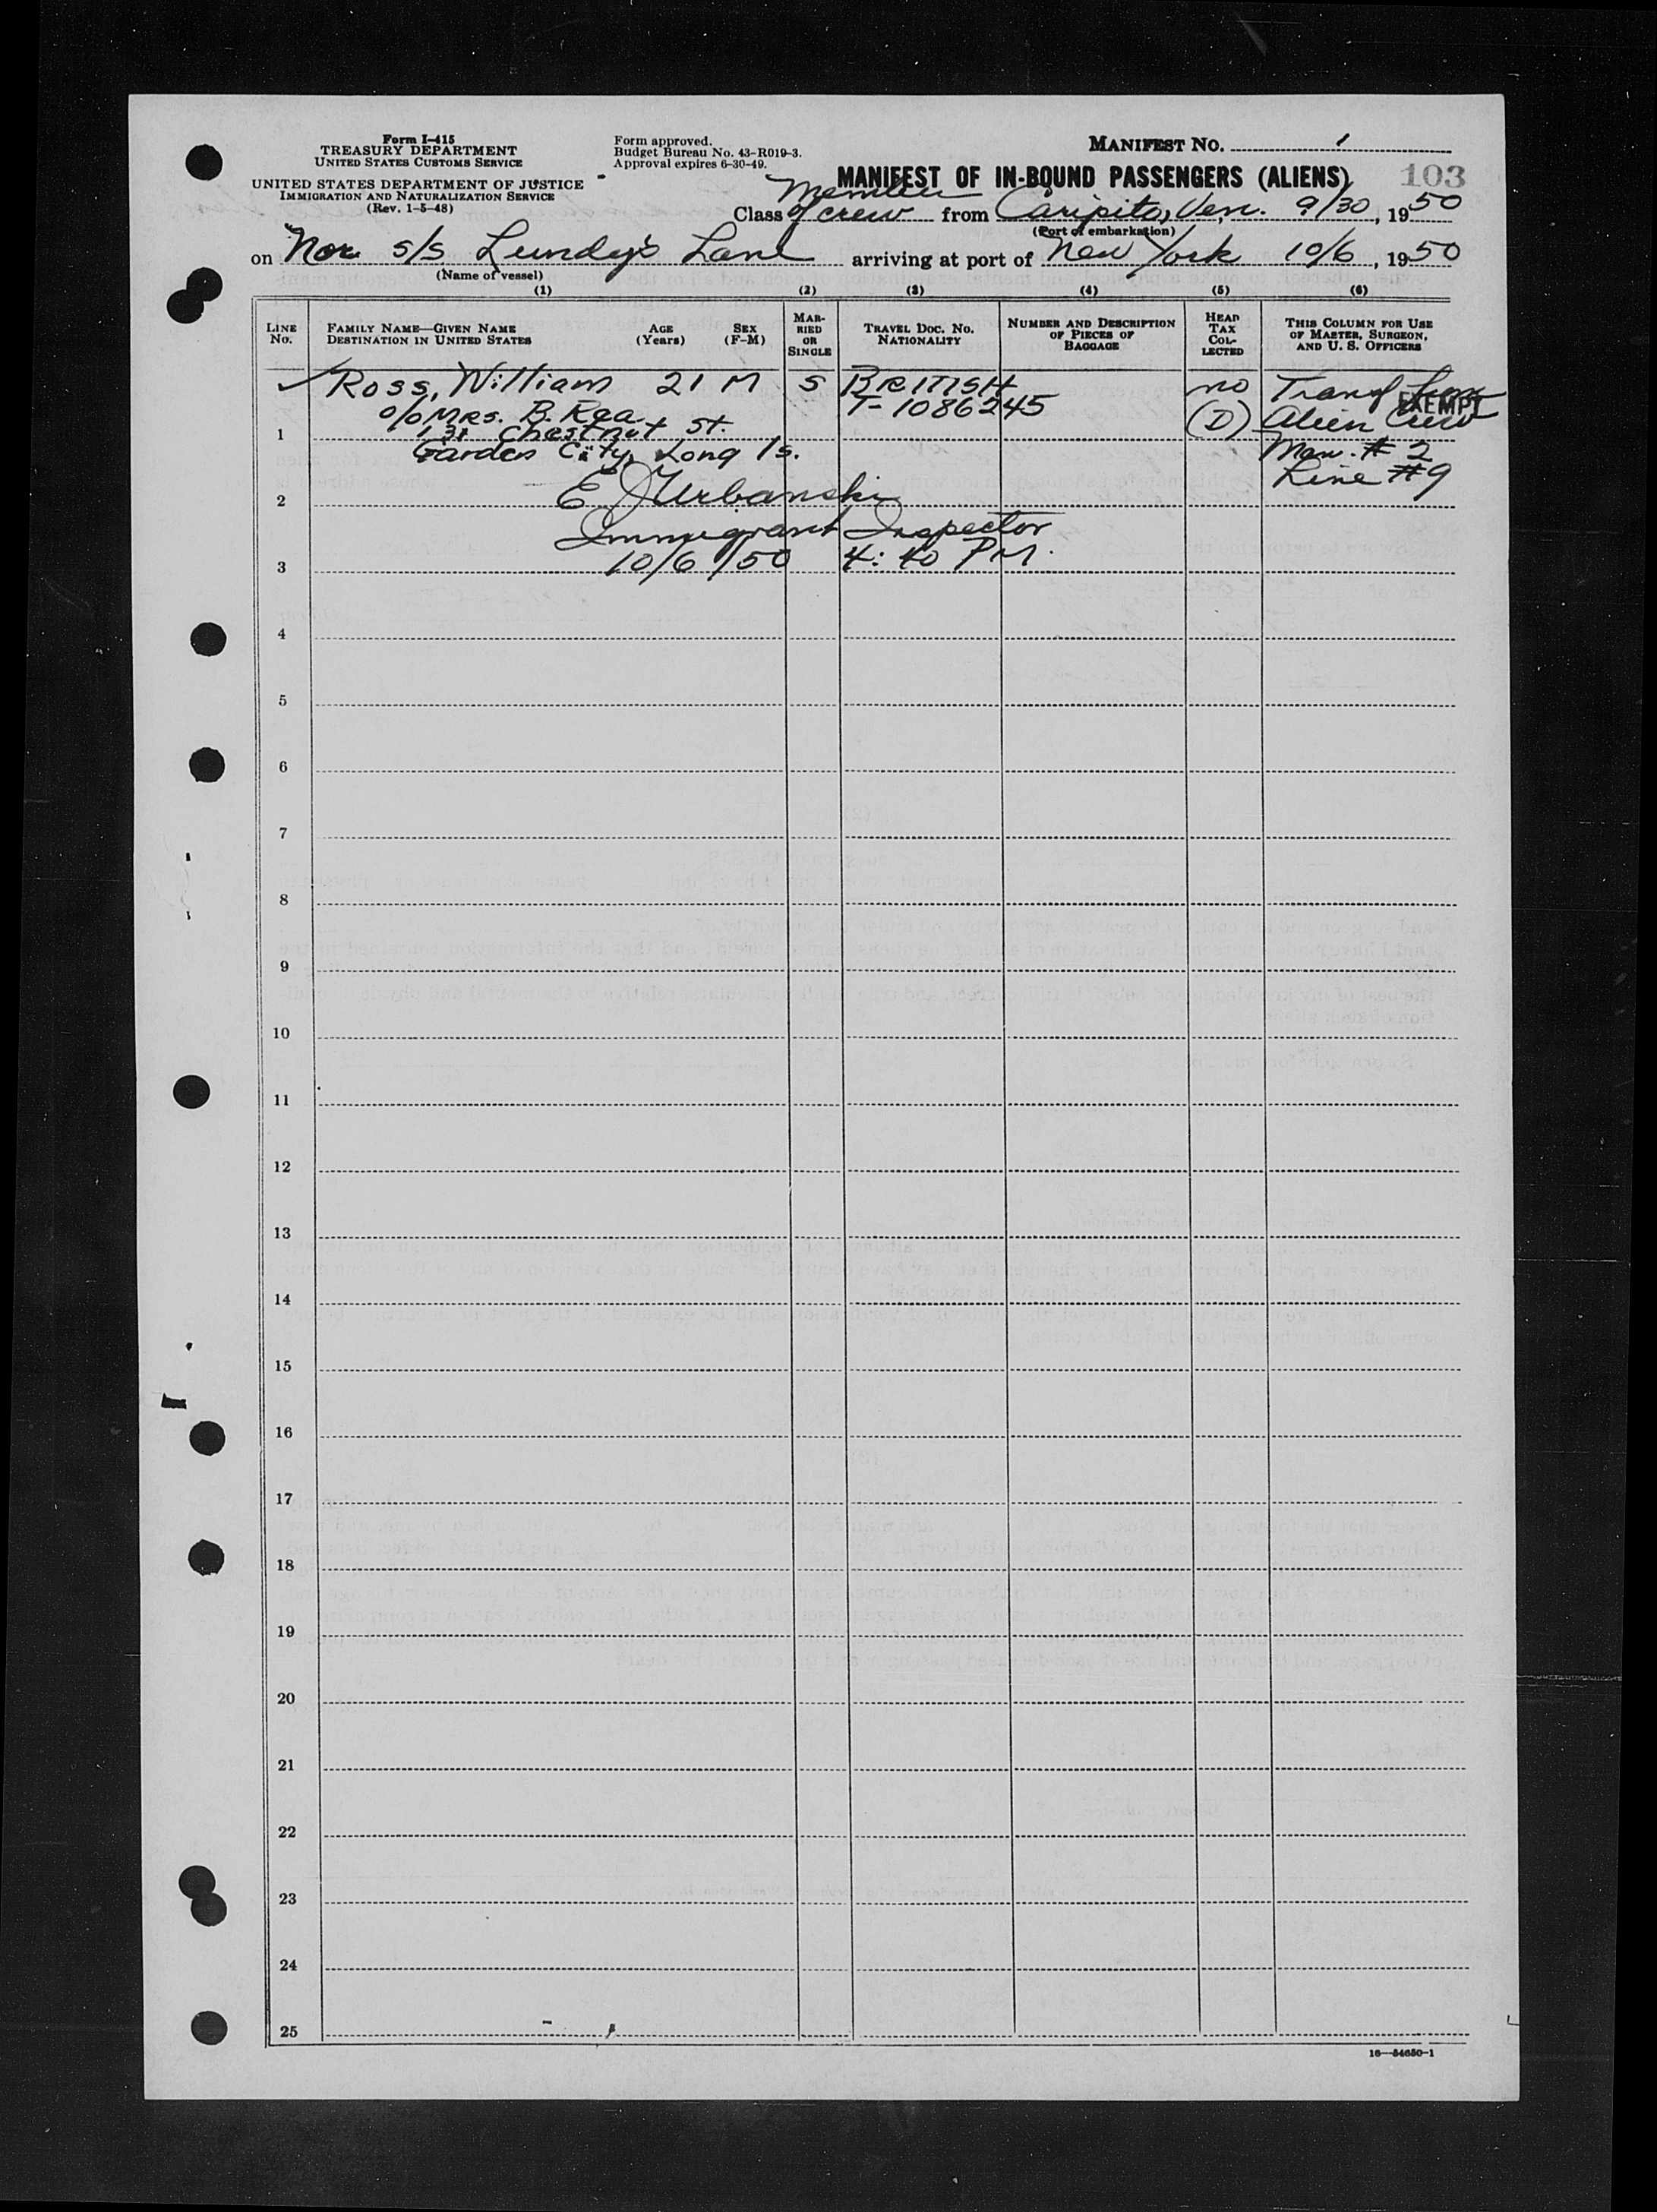 Form I-415
TREASURY DEPARTMENT
UNITED STATES CUSTOMS SERVICE
UNITED STATES DEPARTMENT OF JUSTICE
IMMIGRATION AND NATURALIZATION SERVICE
(Rev. 1-5-48)
Form approved.
Budget Bureau No. 43-R019-3.
Approval expires 6-30-49.
MANIFEST NO. 1
MANIFEST OF IN-BOUND PASSENGERS (ALIENS) 103
Member
Class of crew from Caripito, Ven. 9/30, 1950
(Port of embarkation)
on Nor. S/S Lundy's Lane arriving at port of New York 10/6, 1950
(Name of vessel)
(1) (2) (3) (4) (5) (6)
LINE No.
FAMILY NAME—GIVEN NAME
DESTINATION IN UNITED STATES
AGE (Years)
SEX (F-M)
MARRIED OR SINGLE
TRAVEL DOC. NO. NATIONALITY
NUMBER AND DESCRIPTION OF PIECES OF BAGGAGE
HEAD TAX COLLECTED
THIS COLUMN FOR USE OF MASTER, SURGEON, AND U. S. OFFICERS
Ross, William 21 M S BRITISH no Transf from
c/o MRS. B. Rea T-1086245 EXEMPT
1 131 Chestnut St. (D) Alien Crew
Garden City, Long Is. Man. # 2
Line #9
2 E J Urbanski
Immigrant Inspector
3 10/6/50 4:40 PM.
4
5
6
7
8
9
10
11
12
13
14
15
16
17
18
19
20
21
22
23
24
25
16—54650-1